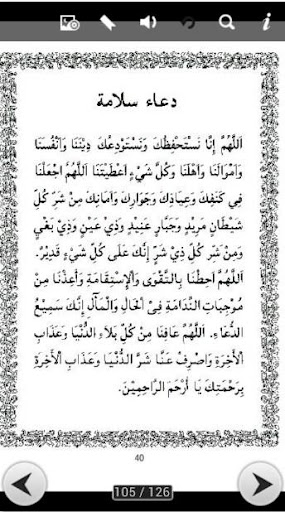 دعاء سلامة
اَللّٰهُمَّ اِنَّا نَسْتَحْفِظُكَ وَنَسْتَوْدِعُكَ دِيْنَنَا وَاَنْفُسَنَا
وَاَمْوَالَنَا وَاَهْلَنَا وَكُلَّ شَيْءٍ اَعْطَيْتَنَا اَللّٰهُمَّ اجْعَلْنَا
فِي كَنَفِكَ وَعِيَاذِكَ وَجِوَارِكَ وَاَمَانِكَ مِنْ شَرِّ كُلِّ
شَيْطَانٍ مَرِيْدٍ وَجَبَّارٍ عَنِيْدٍ وَذِيْ عَيْنٍ وَذِيْ بَغْيٍ
وَمِنْ شَرِّ كُلِّ ذِيْ شَرٍّ اِنَّكَ عَلَى كُلِّ شَيْءٍ قَدِيْرٌ.
اَللّٰهُمَّ اَحِطْنَا بِالتَّقْوَى وَالْاِسْتِقَامَةِ وَاَعِذْنَا مِنْ
مُوْجِبَاتِ النَّدَامَةِ فِي الْحَالِ وَالْمَآلِ اِنَّكَ سَمِيْعُ
الدُّعَاءِ. اَللّٰهُمَّ عَافِنَا مِنْ كُلِّ بَلَاءِ الدُّنْيَا وَعَذَابِ
الْاٰخِرَةِ وَاصْرِفْ عَنَّا شَرَّ الدُّنْيَا وَعَذَابَ الْاٰخِرَةِ
بِرَحْمَتِكَ يَا اَرْحَمَ الرَّاحِمِيْنَ.
40
105 / 126